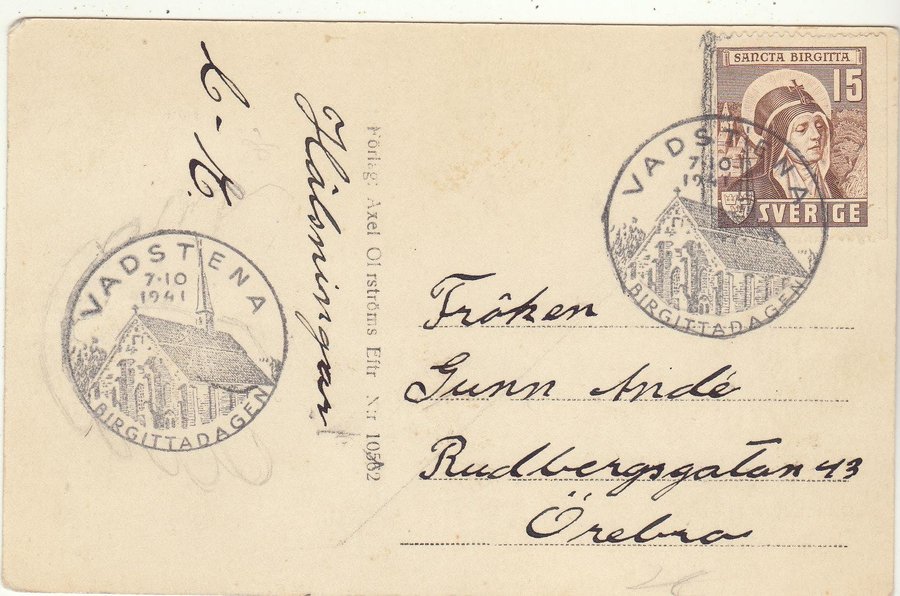 SANCTA BIRGITTA
15
SVERIGE
VADSTENA
7·10
1941
BIRGITTADAGEN
Fröken
Gunn Andé
Rudbergsgatan 43
Örebro
Hälsningar
Förlag: Axel Eftr N:r 10562
VADSTENA
7·10
1941
BIRGITTADAGEN